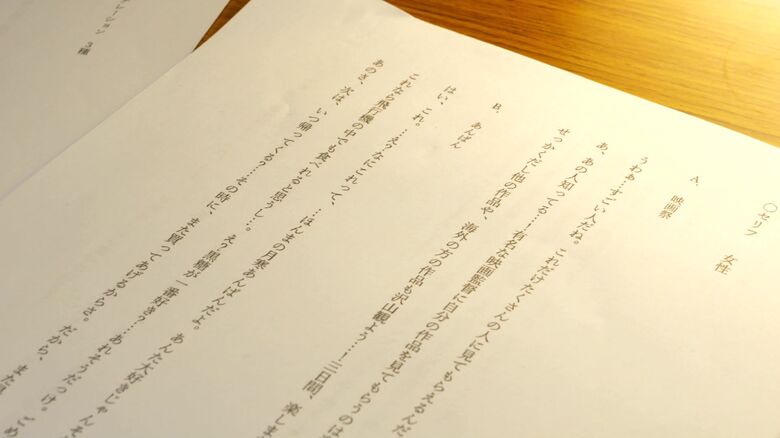 〇セリフ　女性
A、映画祭
うわぁ…すごい人だね。これだけたくさんの人に見てもらえるんだ
あ、あの人知ってる！有名な映画監督に自分の作品を見てもらうのは
せっかくだし他の作品や、海外の方の作品も沢山観よう…！三日間、楽しま
B、あんぱん
はい、これ。
これなら飛行機の中でも食べれると思うし…。え？黒糖が一番好き？…あれそうだっけ。ごめ
…え？なにこれって、…ほんまの月寒あんぱんだよ。あんた大好きじゃんそ
あのさ、次は、いつ帰ってくる？…その時に、また買ってあげるからさ。だから、また
レーション　3種